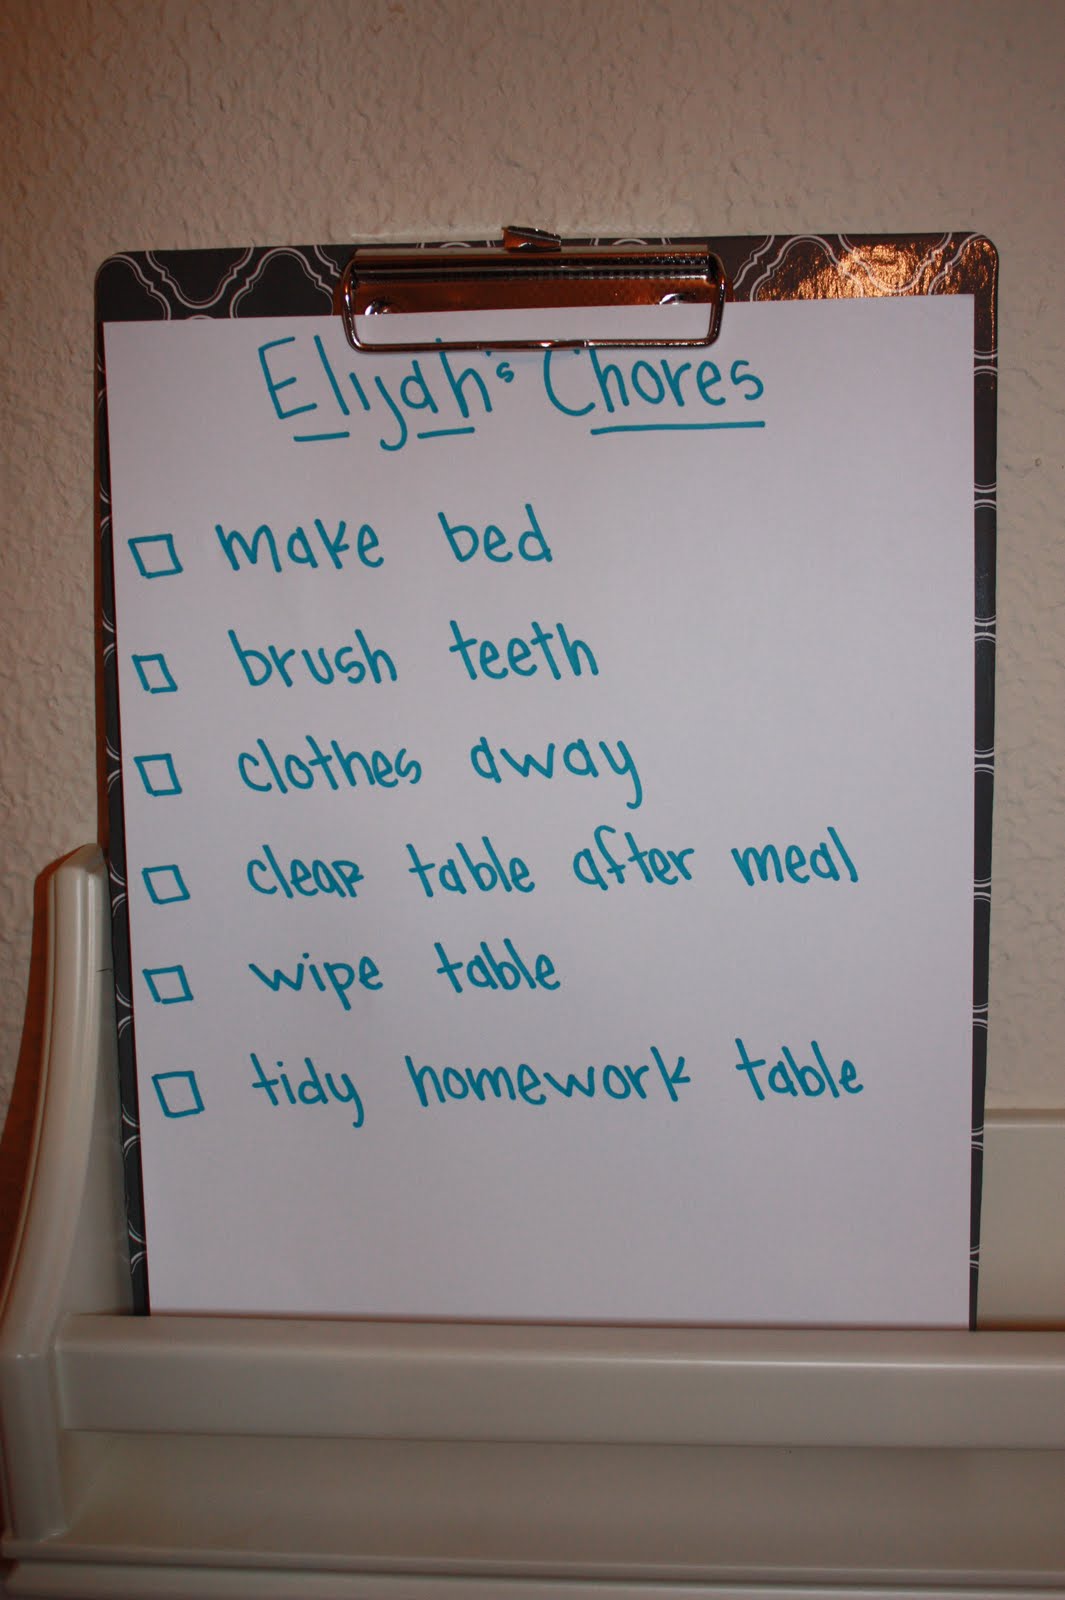 Elijah's Chores
make bed
brush teeth
clothes away
clear table after meal
wipe table
tidy homework table